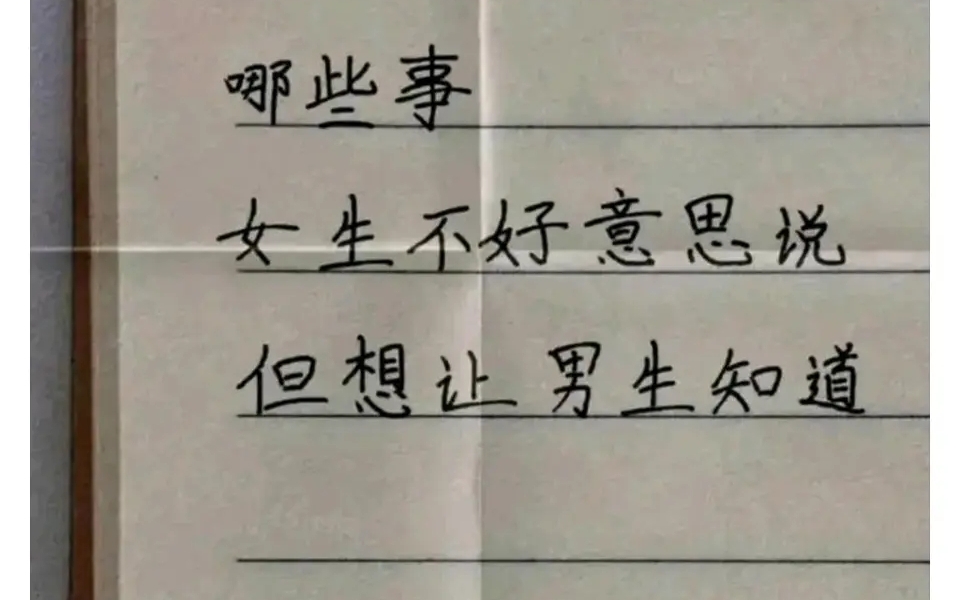 哪些事
女生不好意思说
但想让男生知道